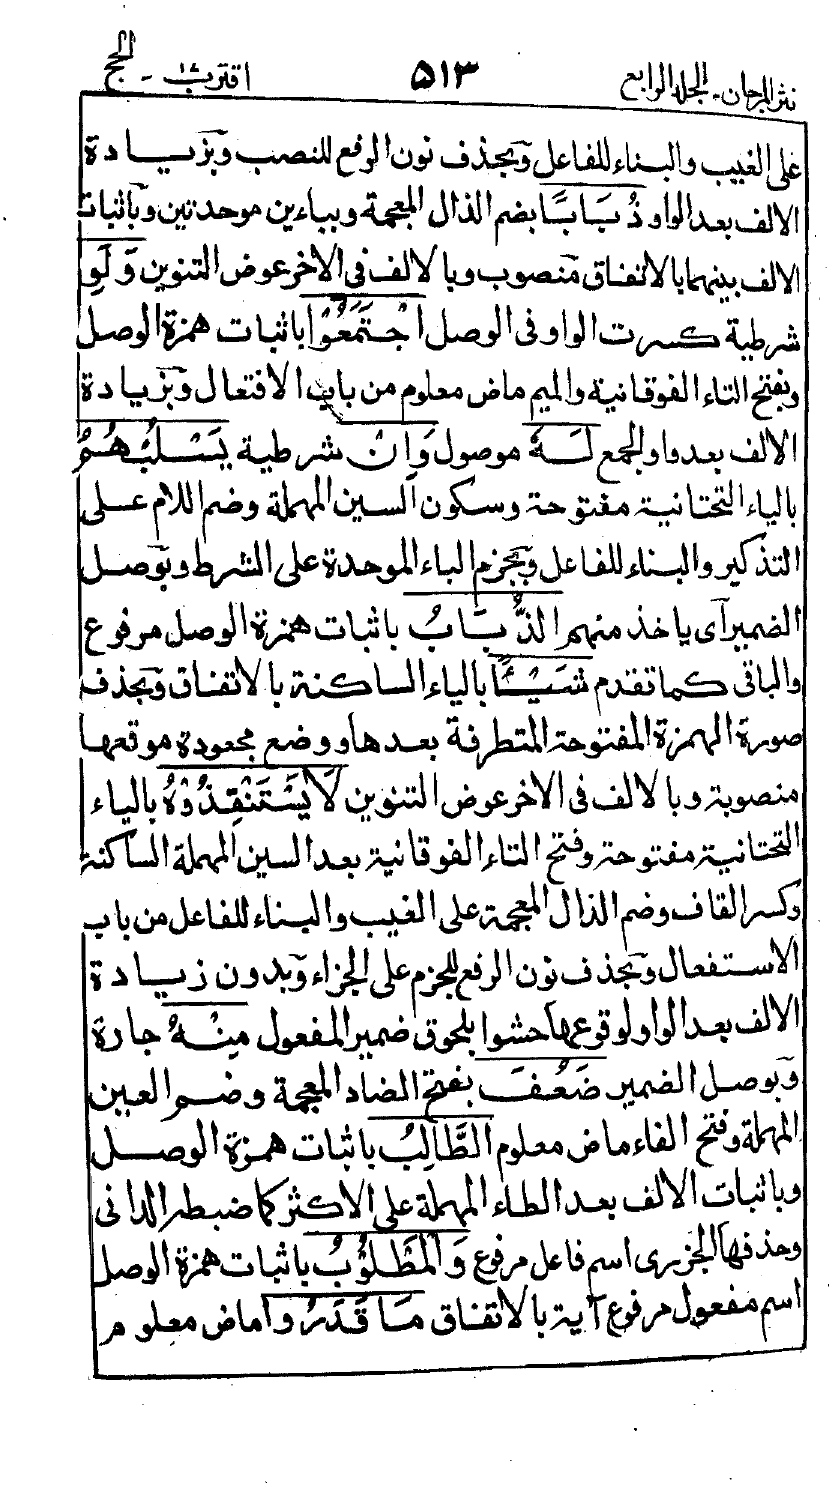 نثر المرجان - الجلد الرابع ۵۱۳ اقترب ١٧ - الحج
على الغيب والبناء للفاعل وبحذف نون الرفع للنصب وبزيادة
الالف بعد الواو ذُبَابًا بضم الذال المعجمة وبباءين موحدتين وباثبات
الالف بينهما بالاتفاق منصوب وبالالف فى الاخر عوض التنوين وَلَوِ
شرطية كسرت الواو فى الوصل اجْتَمَعُوْا باثبات همزة الوصل
وبفتح التاء الفوقانية والميم ماض معلوم من باب الافتعال وبزيادة
الالف بعد واو الجمع لَهٗ موصول وَاِنْ شرطية يَسْلُبْهُمُ
بالياء التحتانية مفتوحة وسكون السين المهملة وضم اللام على
التذكير والبناء للفاعل وبجزم الباء الموحدة على الشرط وبوصل
الضمير اى ياخذ منهم الذُّبَابُ باثبات همزة الوصل مرفوع
والباقى كما تقدم شَيْـًٔا بالياء الساكنة بالاتفاق وبحذف
صورة الهمزة المفتوحة المتطرفة بعدها ووضع مجعودة موقعها
منصوبة وبالالف فى الاخر عوض التنوين لَا يَسْتَنْقِذُوْهُ بالياء
التحتانية مفتوحة وفتح التاء الفوقانية بعد السين المهملة الساكنة
وكسر القاف وضم الذال المعجمة على الغيب والبناء للفاعل من باب
الاستفعال وبحذف نون الرفع للجزم على الجزاء وبدون زيادة
الالف بعد الواو لوقوعها حشوا بلحوق ضمير المفعول مِنْهُ جارة
وبوصل الضمير ضَعُفَ بفتح الضاد المعجمة وضم العين
المهملة وفتح الفاء ماض معلوم الطَّالِبُ باثبات همزة الوصل
وباثبات الالف بعد الطاء المهملة على الاكثر كما ضبطه الدانى
وحذفها الجزرى اسم فاعل مرفوع وَالْمَطْلُوْبُ باثبات همزة الوصل
اسم مفعول مرفوع آية بالاتفاق مَا قَدَرُوا ماض معلوم